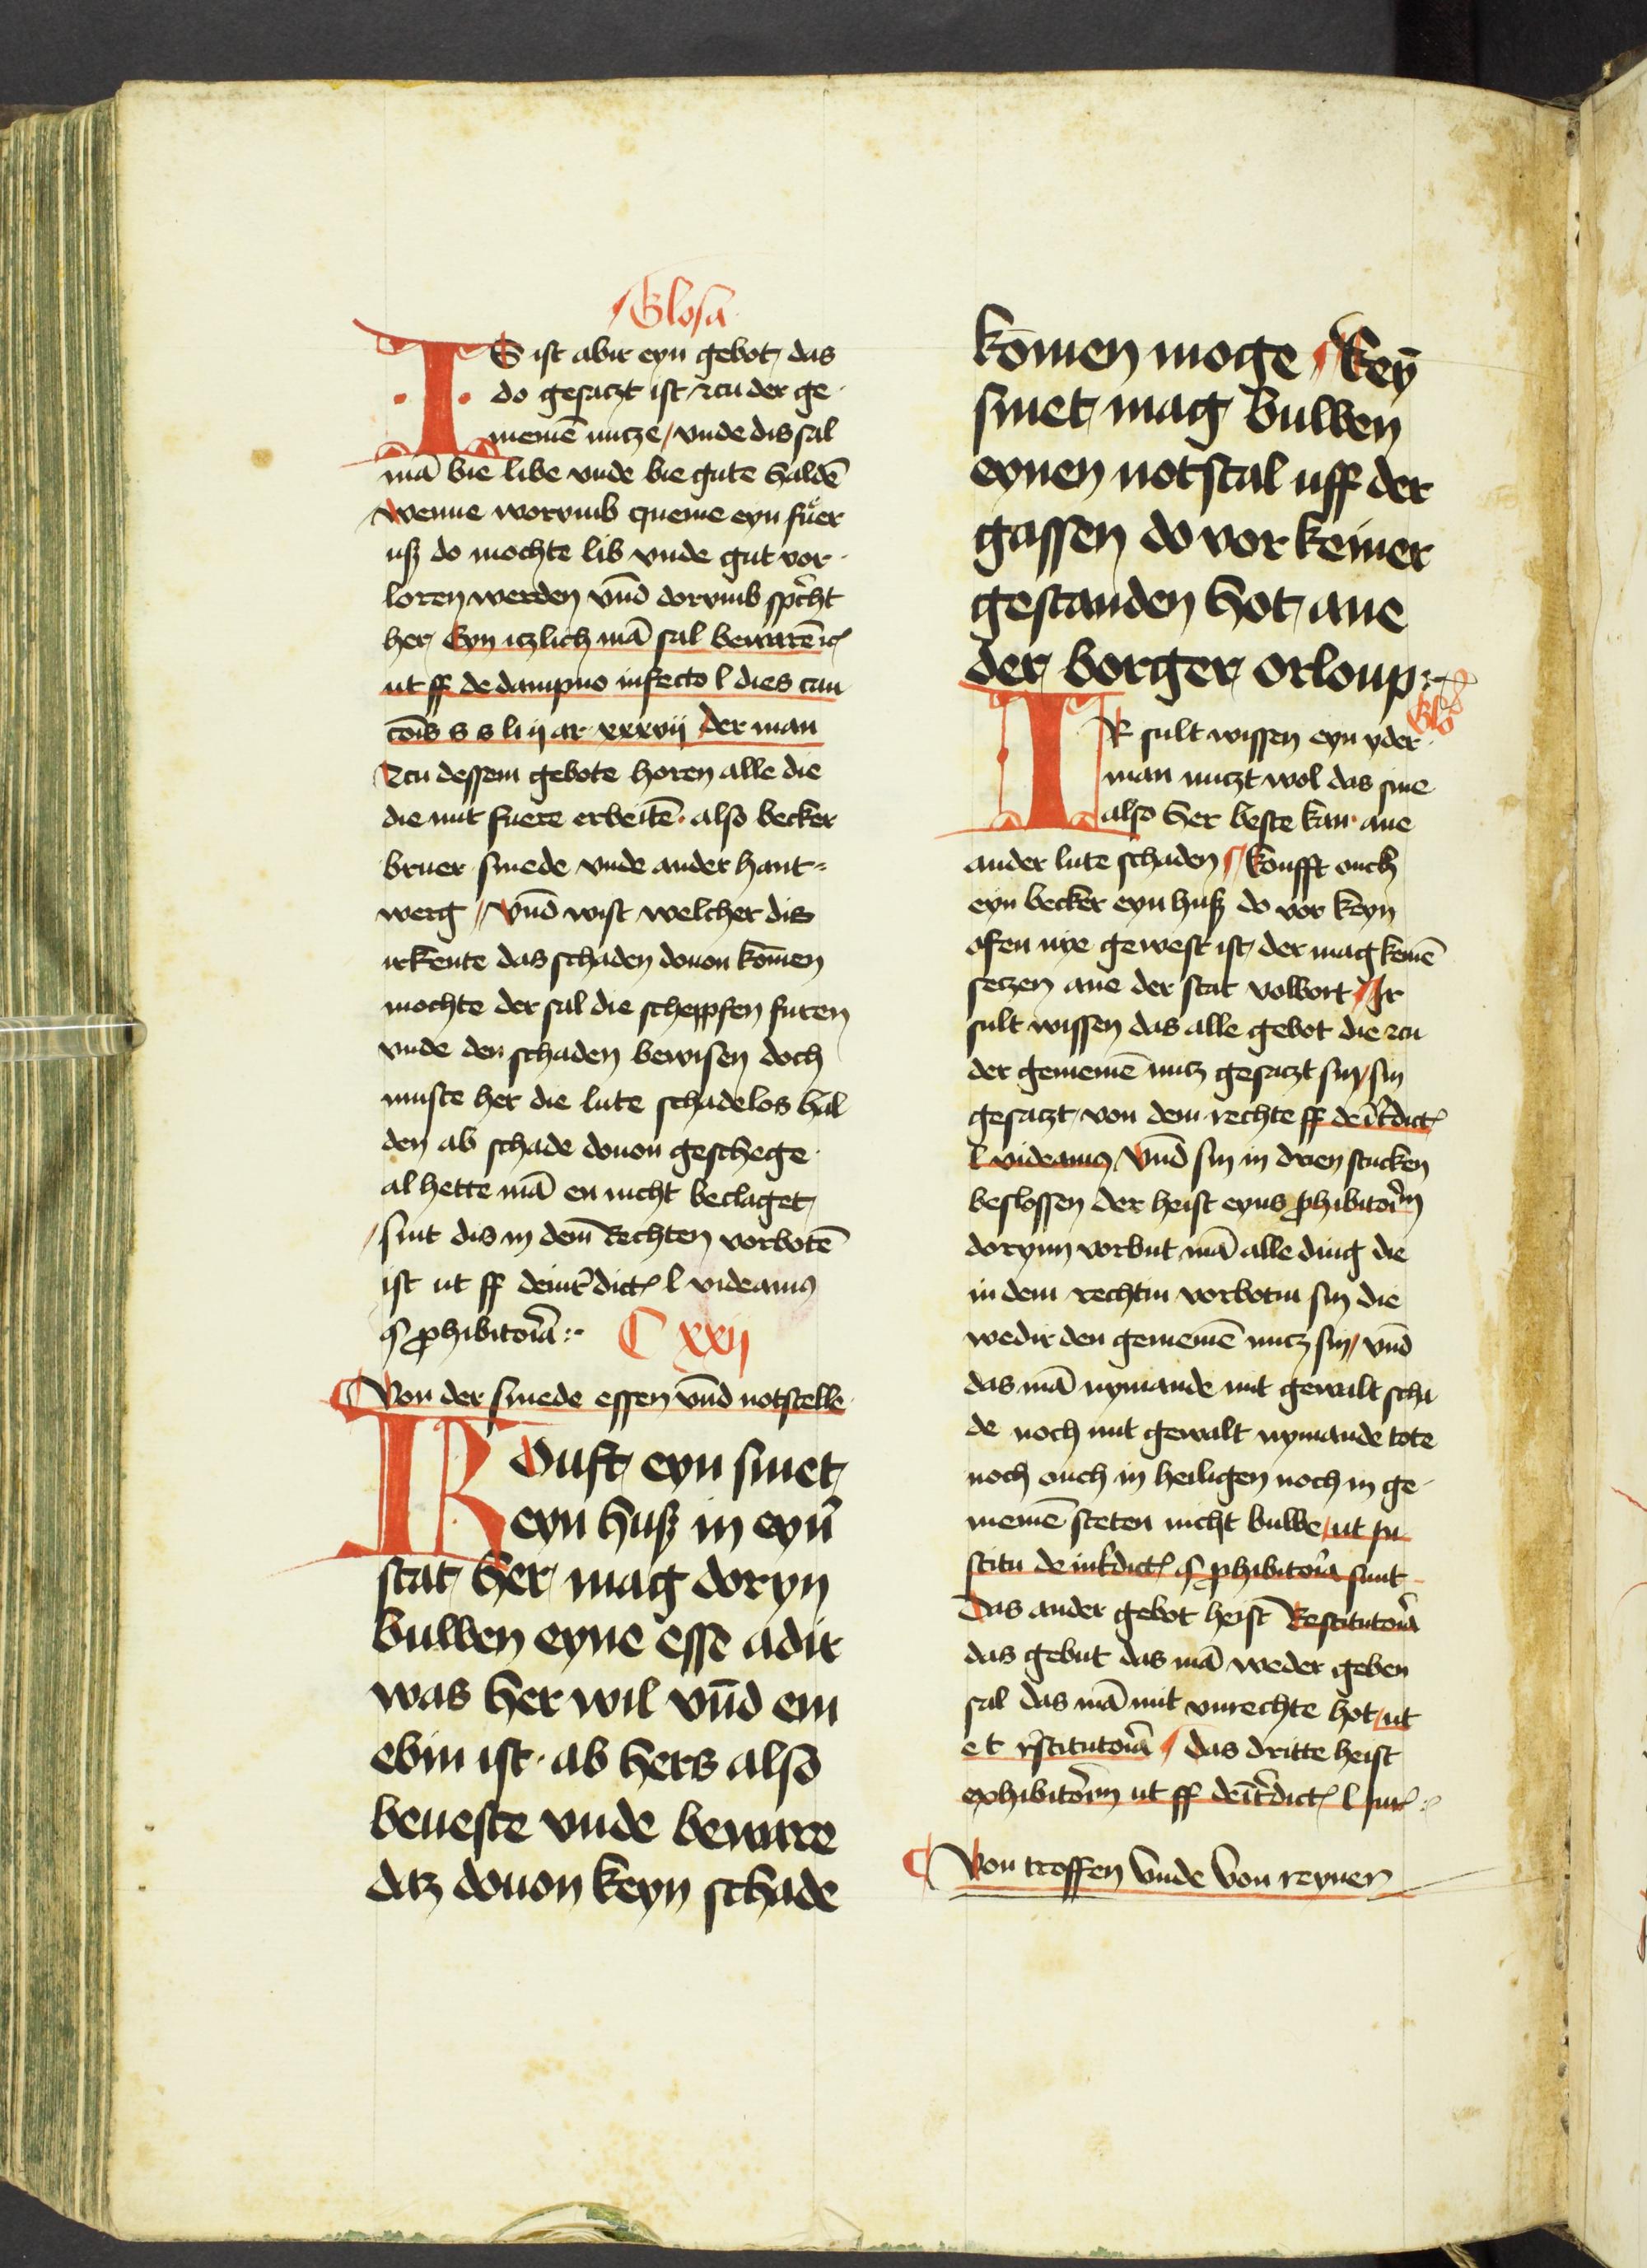 Glosa
IS ist abir eyn gebot das
do gesatzt ist zcu der ge
meinē nutze / vnde dis sal
mā bie libe vnde bie gute haldē
wenne worvmb queme eyn fuer
uß do mochte lib vnde gut vor
loren werden vnd dorvmb spcht
her Eyn itzlich mā sal bewarē ꝛc
ut ff de dampno infecto l dies cau
cōis s s li ij ar xxxvij der man
zcu dessem gebote horen alle die
die mit fuere erbeitē · also becker
bruer smede vnde ander hant=
werg / Vnd wist welcher dis
irkente das schaden douon komen
mochte der sal die scheppfen furen
vnde den schaden bewisen doch
muste her die lute schadelos hal
den ab schade douon geschege
al hette mā en nicht beclaget
sint dis in dem Rechten vorbotē
ist ut ff deint̄dict̄ l videamꝯ
§ ꝓhibitoria :· C xxij
Von der smede essen vnd notstelle
KOuft eyn smet
eyn huß in eyn̄
stat her mag doryn
buwen eyne esse adir
was her wil vnd em
ebin ist · ab hers also
beueste vnde beware
daz douon keyn schade
komen moge / Key
smet mag buwen
eynen notstal uff der
gassen do vor keiner
gestanden hot ane
der borger orloup :·
Glo
IR sult wissen eyn yder
man nutzt wol das sine
also her beste kan · ane
ander lute schaden / koufft ouch
eyn becker eyn huß do vor keyn
ofen nye gewest ist der mag keinē
setzen ane der stat volbort / Ir
sult wissen das alle gebot die zcu
der gemeinē nutz gesatzt sin / sin
gesatzt von dem rechte ff deīt̄dict̄
l videamꝯ / Vnd sin in drien stucken
beslossen der heist eyns ꝓhibitorm
dorynn vorbut mā alle ding die
in dem rechtin vorbotin sin die
wedir den gemeinē nutz sin / vnd
das mā nymande mit gewalt scha
de noch mit gewalt nymande tote
noch ouch in heiligen noch in ge
meinē steten nicht buwe / ut in
stitu de int̄dict̄ § ꝓhibitoria sunt
das ander gebot heist Restitutoria
das gebut das mā weder geben
sal das mā mit vnrechte hot / ut
e t restitutoria / das dritte heist
exhibitorm ut ff deīt̄dict̄ l
Von troffen vnde von reyner